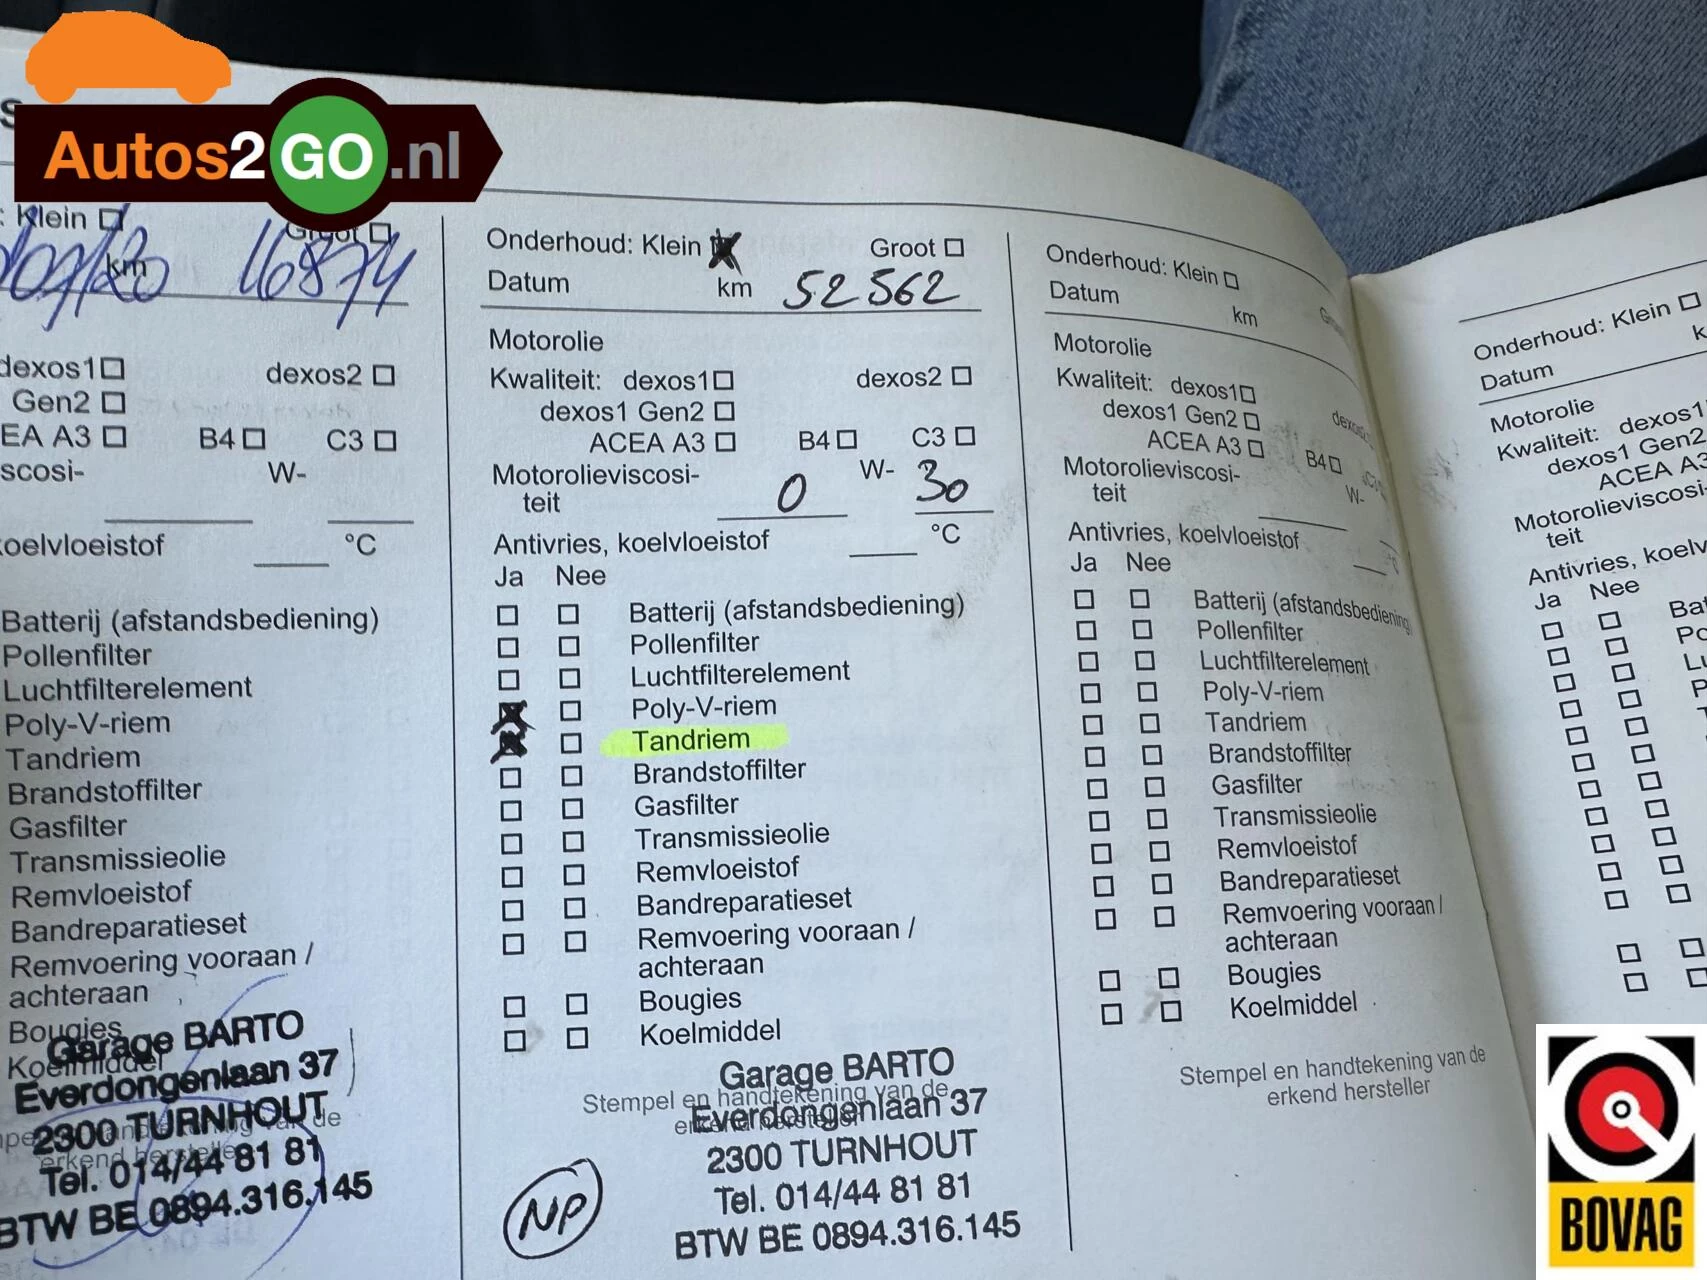 Autos2GO.nl
: Klein
Groot
km
16874
dexos1
dexos2
Gen2
EA A3
B4
C3
scosi-
W-
koelvloeistof
°C
Batterij (afstandsbediening)
Pollenfilter
Luchtfilterelement
Poly-V-riem
Tandriem
Brandstoffilter
Gasfilter
Transmissieolie
Remvloeistof
Bandreparatieset
Remvoering vooraan /
achteraan
Bougies
Koelmiddel
Garage BARTO
Everdongenlaan 37
2300 TURNHOUT
erkend hersteller
Tel. 014/44 81 81
BTW BE 0894.316.145
Onderhoud: Klein Groot
Datum km 52562
Motorolie
Kwaliteit: dexos1 dexos2
dexos1 Gen2
ACEA A3 B4 C3
Motorolieviscosi- W-
teit 0 30
Antivries, koelvloeistof °C
Ja Nee
Batterij (afstandsbediening)
Pollenfilter
Luchtfilterelement
Poly-V-riem
Tandriem
Brandstoffilter
Gasfilter
Transmissieolie
Remvloeistof
Bandreparatieset
Remvoering vooraan /
achteraan
Bougies
Koelmiddel
Stempel en handtekening van de
erkend hersteller
Garage BARTO
Everdongenlaan 37
2300 TURNHOUT
Tel. 014/44 81 81
BTW BE 0894.316.145
NP
Onderhoud: Klein
Datum km
Motorolie
Kwaliteit: dexos1
dexos1 Gen2
ACEA A3 B4
Motorolieviscosi- W-
teit
Antivries, koelvloeistof
Ja Nee
Batterij (afstandsbediening
Pollenfilter
Luchtfilterelement
Poly-V-riem
Tandriem
Brandstoffilter
Gasfilter
Transmissieolie
Remvloeistof
Bandreparatieset
Remvoering vooraan /
achteraan
Bougies
Koelmiddel
Stempel en handtekening van de
erkend hersteller
Onderhoud: Klein
Datum
Motorolie
Kwaliteit: dexos1
dexos1 Gen2
ACEA A3
Motorolieviscosi-
teit
Antivries, koelv
Ja Nee
BOVAG